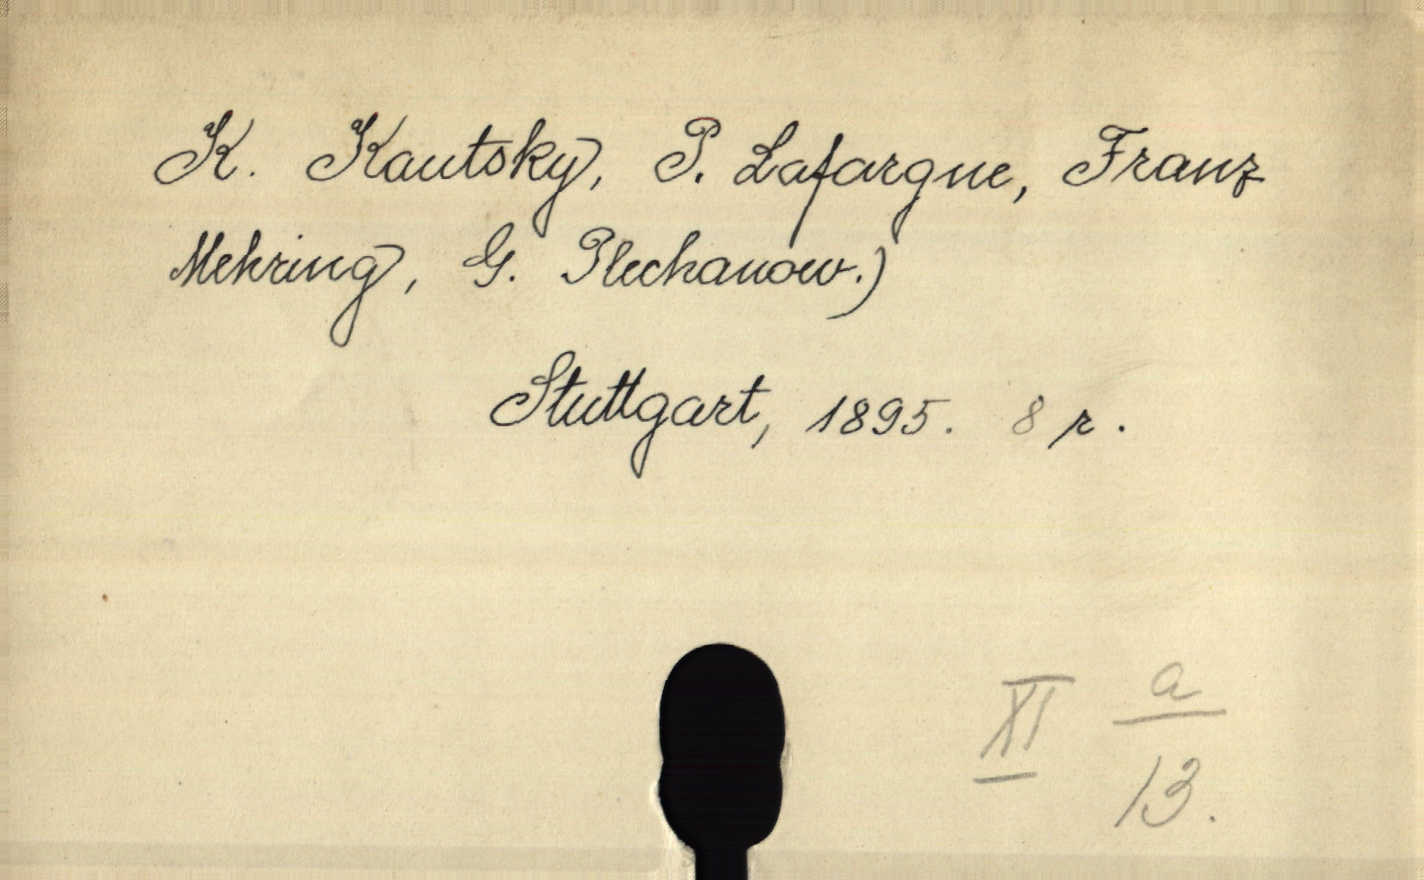 K. Kautsky, P. Lafargue, Franz
Mehring, G. Plechanow.)
Stuttgart, 1895. 8 r.
XI a
13.